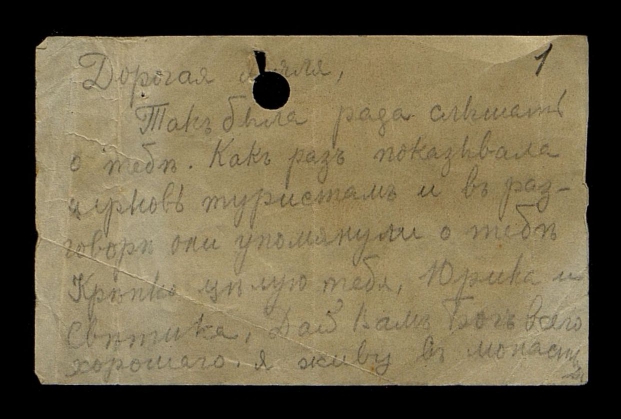 1
Дорогая
Такъ была рада слышать
о тебѣ. Какъ разъ показывала
церковь туристамъ и въ раз-
говорѣ они упомянули о тебѣ
Крѣпко цѣлую тебя, Юрика и
Свѣтика, Дай Вамъ Богъ всего
хорошаго. Я живу въ монасты